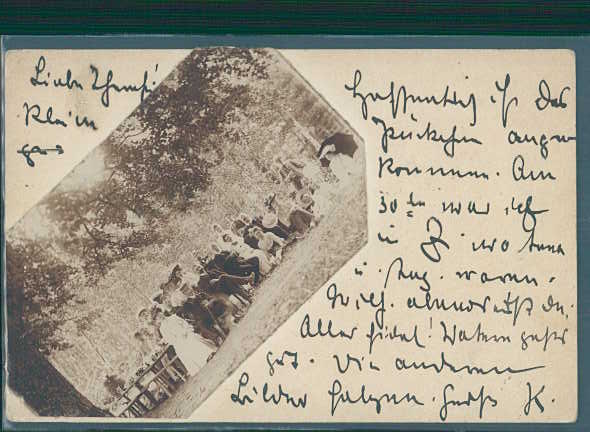 Liebe
Klein
Hoffentlich ist das
Päckchen ange
kommen. Am
30ten war ich
in Z. wo Anna
u. Aug. waren.
Wilh. abends
Alles fidel! geht's
gut. Die anderen
Bilder folgen. Gruß K.